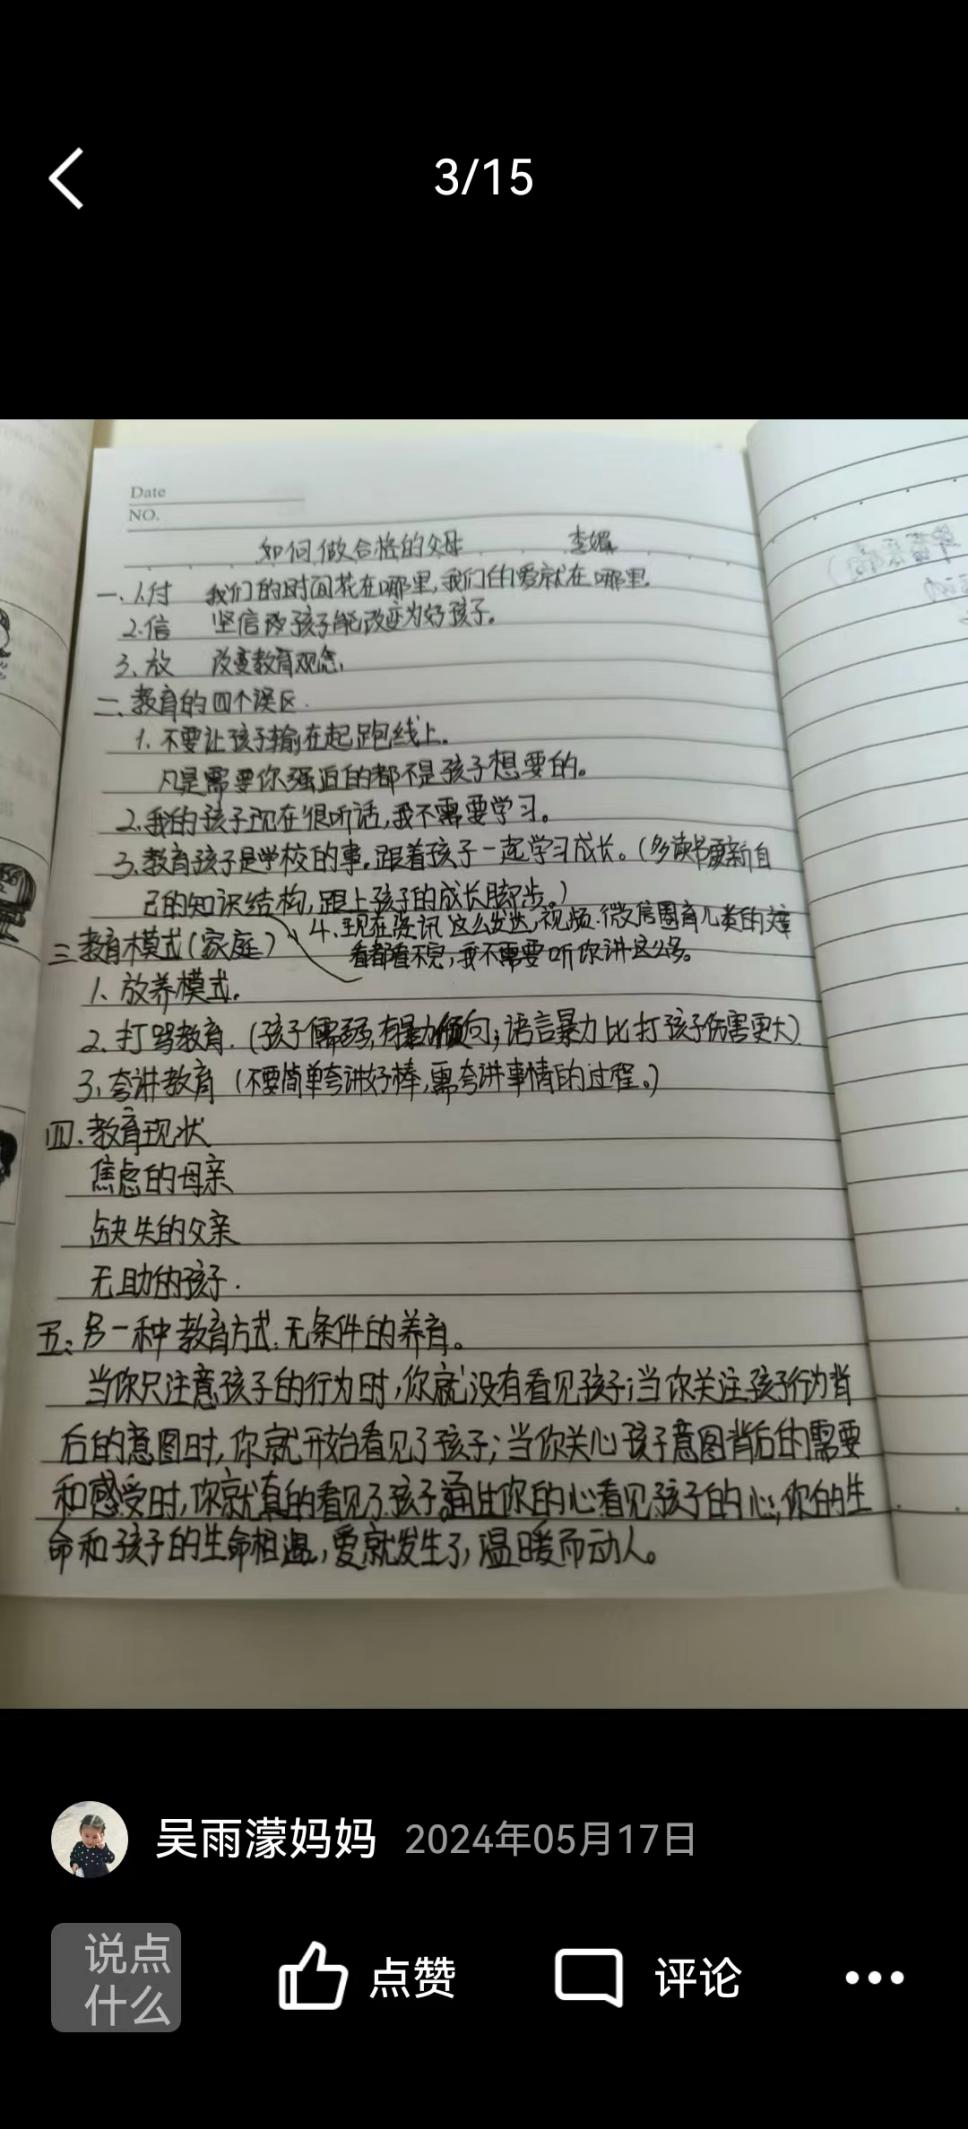 3/15
Date
NO.
如何做合格的父母 李娟
一、1.付 我们的时间花在哪里,我们的爱就在哪里
2.信 坚信孩子能改变为好孩子。
3、放 改变教育观念,
二、教育的四个误区.
1、不要让孩子输在起跑线上。
凡是需要你强迫的都不是孩子想要的。
2、我的孩子现在很听话,我不需要学习。
3、教育孩子是学校的事,跟着孩子一起学习成长。(多读书更新自
己的知识结构,跟上孩子的成长脚步。)
4、现在资讯这么发达,视频、微信圈育儿类的文章
看都看不完,我不需要听你讲这么多。
三、教育模式(家庭)
1、放养模式。
2、打骂教育.(孩子懦弱,有暴力倾向;语言暴力比打孩子伤害更大)
3、夸讲教育(不要简单夸讲好棒,需夸讲事情的过程。)
四、教育现状
焦虑的母亲
缺失的父亲
无助的孩子.
五、另一种教育方式:无条件的养育。
当你只注意孩子的行为时,你就没有看见孩子;当你关注孩子行为背
后的意图时,你就开始看见了孩子;当你关心孩子意图背后的需要
和感受时,你就真的看见了孩子,通过你的心看见孩子的心,你的生
命和孩子的生命相遇,爱就发生了,温暖而动人。
吴雨濛妈妈 2024年05月17日
说点
什么
点赞 评论